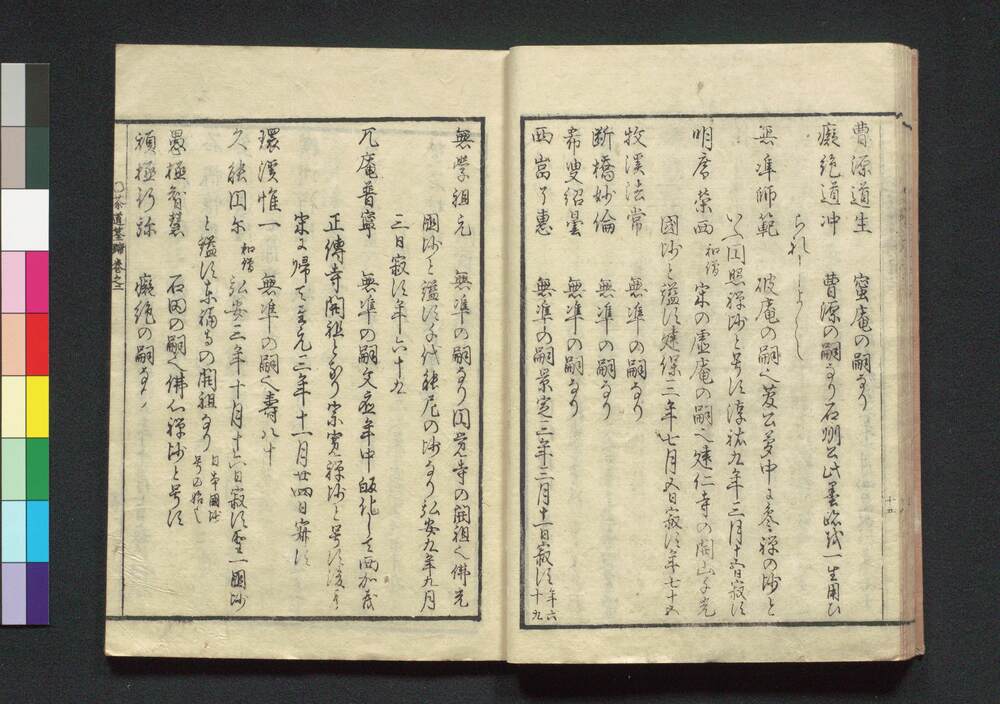 曹源道生　蜜庵の嗣なり
癡絶道冲　曹源の嗣なり石州公此墨蹟を一生用ひ
られしとなん
無準師範　破庵の嗣也夢中に参禅の師と
いへり円照禅師と号す淳祐九年三月十八日寂す
明庵栄西　和僧　宋の虚庵の嗣也建仁寺の開山千光
国師と謚す建保三年七月五日寂す年七十五
牧溪法常　無準の嗣なり
断橋妙倫　無準の嗣なり
希叟紹曇　無準の嗣なり
西岩了惠　無準の嗣景定三年三月十一日寂す年六十九
十五
無学祖元　無準の嗣なり円覚寺の開祖也佛光
国師と謚す千代能尼の師なり弘安九年九月
三日寂す年六十五
兀庵普寧　無準の嗣文應年中皈化して西加茂
正傳寺開祖となり宗覚禅師と号す後に
宋に帰て至元三年十一月廿四日寂す
環溪惟一　無準の嗣也壽八十
久能円尓　和僧　弘安三年十月十六日寂す聖一国師
と謚す東福寺の開祖なり　日本国師号の始也
愚極智慧　石田の嗣也佛心禅師と号す
頑極行弥　癡絶の嗣なり
〇茶道筌蹄　巻之二